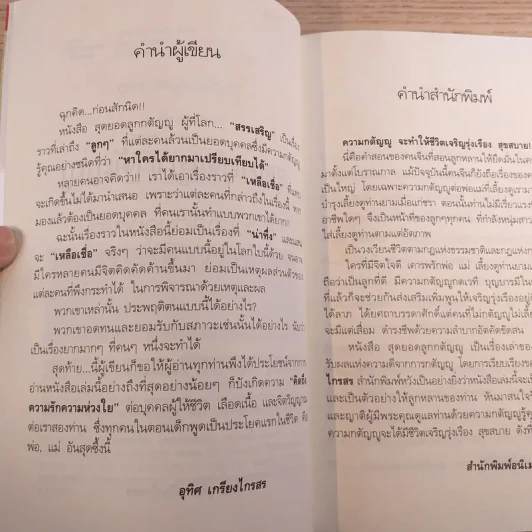 คำนำผู้เขียน
ฉุกคิด...ก่อนสักนิด!!
หนังสือ สุดยอดลูกกตัญญู ผู้ที่โลก... "สรรเสริญ" เป็นเรื่อง
ราวที่เล่าถึง "ลูกๆ" ที่แต่ละคนล้วนเป็นยอดบุคคลซึ่งมีความกตัญญู
รู้คุณอย่างชนิดที่ว่า "หาใครได้ยากมาเปรียบเทียบได้"
หลายคนอาจคิดว่า!! เราได้เอาเรื่องราวที่ "เหลือเชื่อ" ที่
จะเกิดขึ้นไม่ได้มานำเสนอ เพราะว่าแต่ละคนที่กล่าวถึงในเรื่องนี้
มองแล้วต้องเป็นยอดบุคคล ที่คนเรานั้นทำแบบพวกเขาได้ยาก
ฉะนั้นเรื่องราวในหนังสือนี้ย่อมเป็นเรื่องที่ "น่าทึ่ง" และแสน
จะ "เหลือเชื่อ" จริงๆ ว่าจะมีคนแบบนี้อยู่ในโลกใบนี้ด้วย จน
มีใครหลายคนมีจิตคิดคัดค้านขึ้นมา ย่อมเป็นเหตุผลส่วนตัวของ
แต่ละคนที่พึงกระทำได้ ในการพิจารณาด้วยเหตุและผล
พวกเขาเหล่านั้น ประพฤติตนแบบนี้ได้อย่างไร?
พวกเขาอดทนและยอมรับกับสภาวะเช่นนั้นได้อย่างไร นับว่า
เป็นเรื่องยากมากๆ ที่คนๆ หนึ่งจะทำได้
สุดท้าย...นี้ผู้เขียนก็ขอให้ผู้อ่านทุกท่านพึงได้ประโยชน์จากการ
อ่านหนังสือเล่มนี้อย่างถึงที่สุดอย่างน้อยๆ ก็บังเกิดความ
ความรักความห่วงใย" ต่อบุคคลผู้ให้ชีวิต เลือดเนื้อ และจิตวิญญาณ
ต่อเราสองท่าน ซึ่งทุกคนในตอนเด็กพูดเป็นประโยคแรกในชีวิต คือ
พ่อ, แม่ อันสุดซึ้งนี้
อุทิศ เกรียงไกรสร
คำนำสำนักพิมพ์
ความกตัญญู จะทำให้ชีวิตเจริญรุ่งเรือง สุขสบาย!
นี่คือคำสอนของคนจีนที่สอนลูกหลานให้ยึดมั่นใน
มาตั้งแต่โบราณกาล แม้ปัจจุบันนี้คนจีนก็ยังถือเรื่องของ
เป็นใหญ่ โดยเฉพาะความกตัญญูต่อพ่อแม่ที่เลี้ยงดูเรา
บำรุงเลี้ยงดูท่านยามเมื่อแก่ชรา ตอนนั้นท่านไม่มีเรี่ยวแรง
อาชีพใดๆ จึงเป็นหน้าที่ของลูกๆทุกคน ที่กำลังหนุ่มสาว
ใส่เลี้ยงดูท่านตามแต่อัตภาพ
เป็นวงเวียนชีวิตตามกฎแห่งธรรมชาติและกฎแห่ง
ใครที่มีจิตใจดี เคารพรักพ่อ แม่ เลี้ยงดูท่านยาม
ถือว่าเป็นลูกที่ดี มีความกตัญญูกตเวที บุญบารมี
ที่แล้วก็จะช่วยกันส่งเสริมเพิ่มพูนให้เจริญรุ่งเรืองอยู่
ได้ลาภ ได้ยศถาบรรดาศักดิ์แต่คนที่ไม่กตัญญู
จะมีแต่เสื่อม ดำรงชีพด้วยความลำบากอัตคัดขัดสน
หนังสือ สุดยอดลูกกตัญญู เป็นเรื่องเล่าของ
รับผลแห่งความดีจากการกตัญญู โดยการเรียบเรียง
ไกรสร สำนักพิมพ์หวังเป็นอย่างยิ่งว่าหนังสือเล่มนี้จะ
และเป็นตัวอย่างให้ลูกหลานของท่าน หันมาสนใจ
และญาติผู้มีพระคุณดูแลท่านด้วยความกตัญญูรู้คุณ
ความกตัญญูจะได้มีชีวิตเจริญรุ่งเรือง สุขสบาย
สำนักพิมพ์